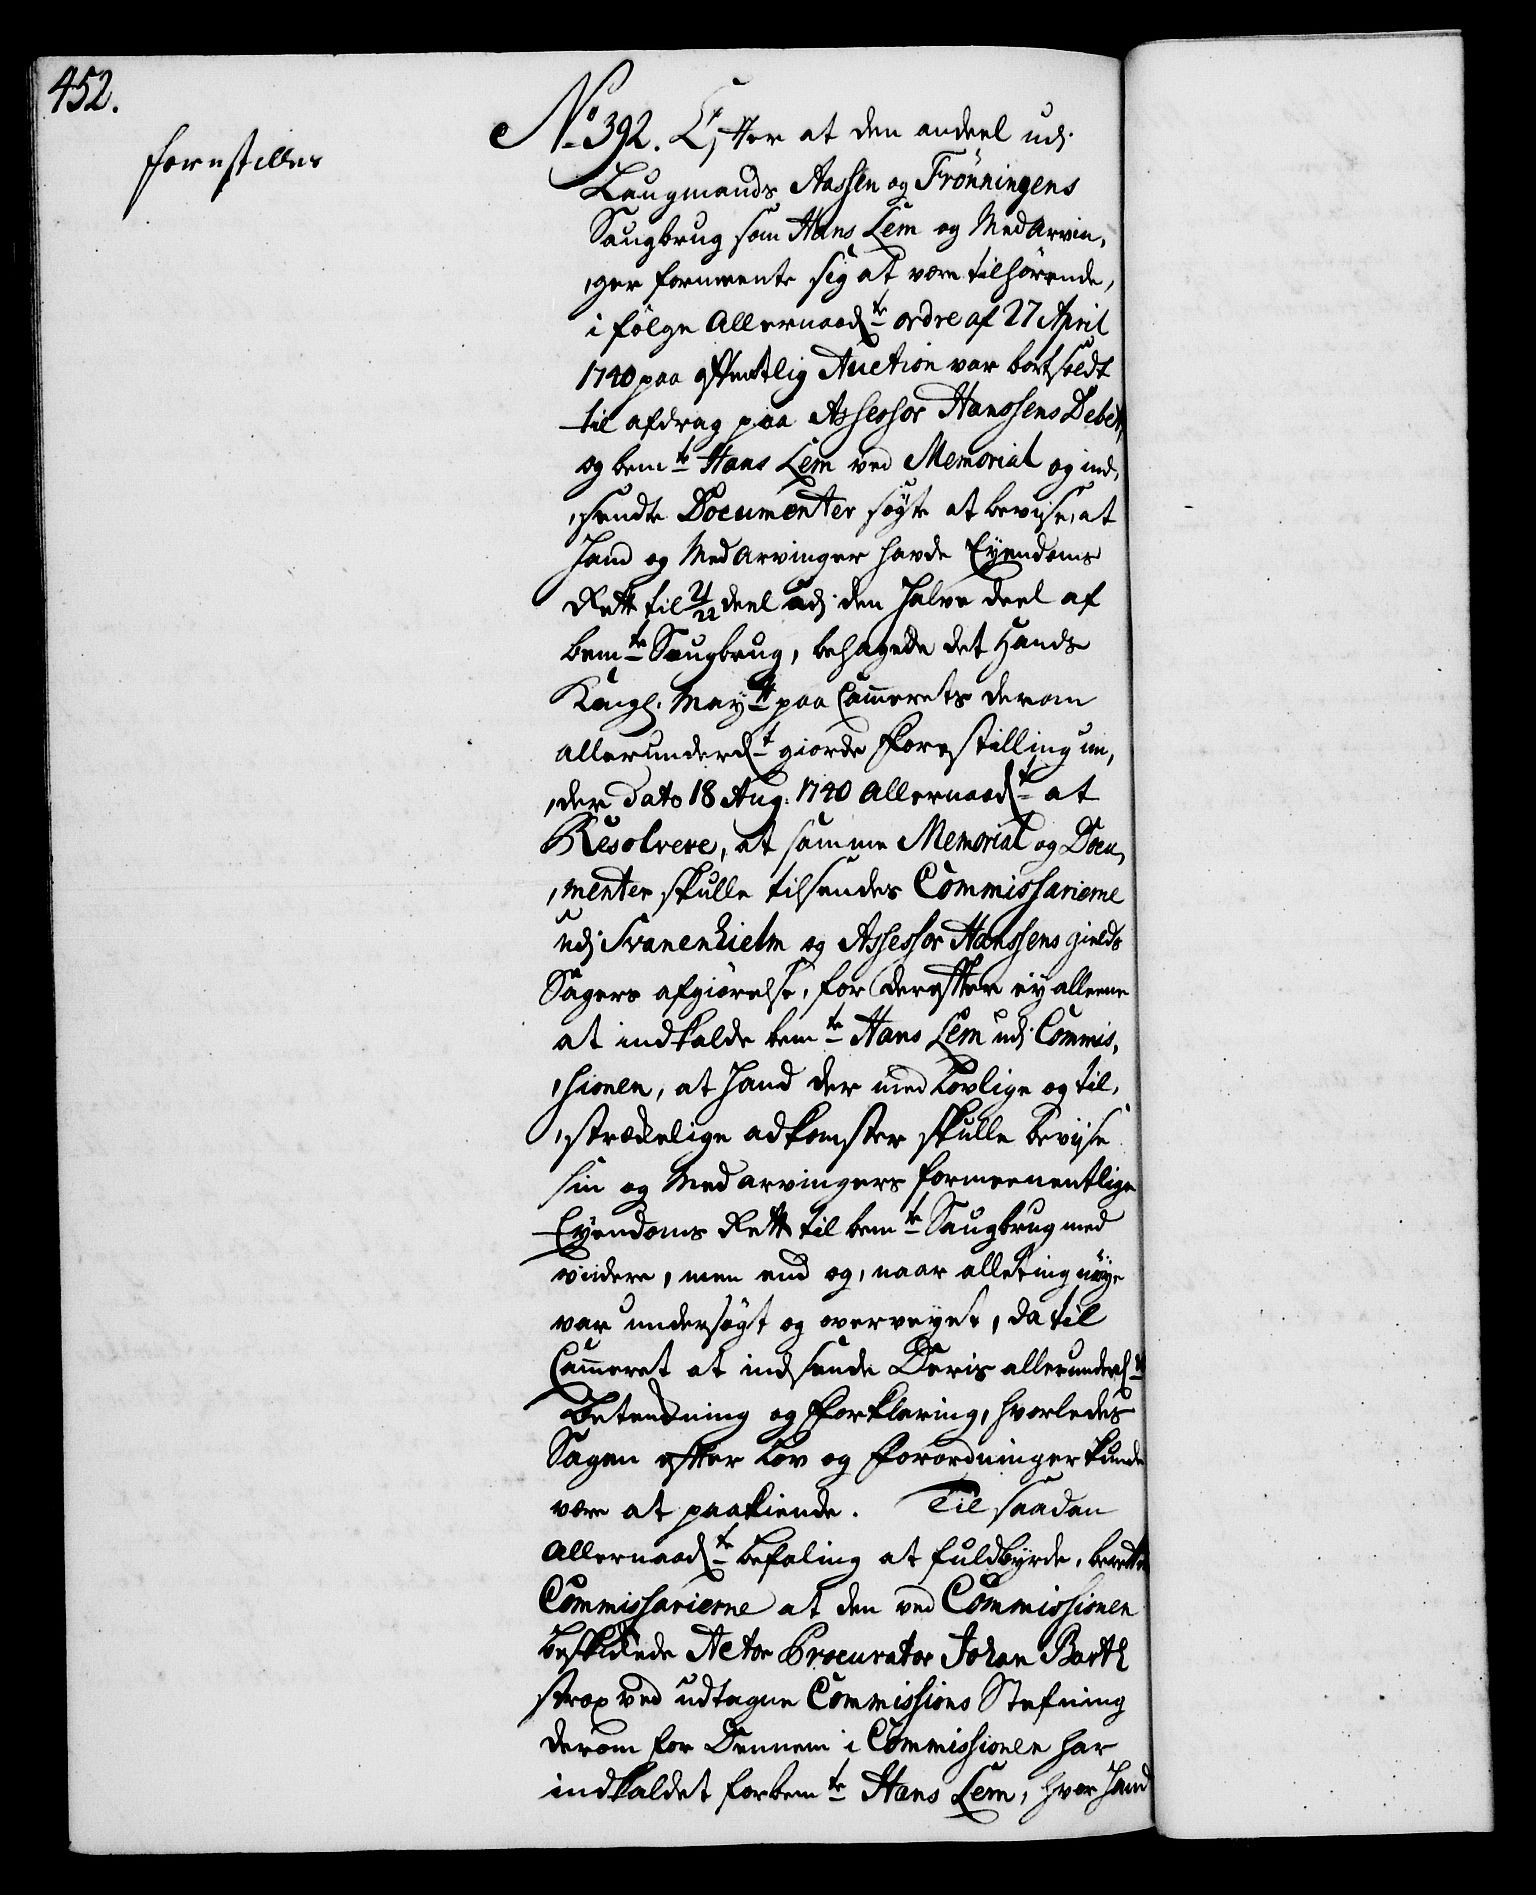 452.
forestilles
No 392. Efter at den andeel udj
Laugmands Aassen og Frönningens
Saugbrug som Hans Lem og Medarvin,
,ger formeente sig at være tilhörende,
i fölge Allernaadte ordre af 27 April
1740 paa offentlig Auction var bortsoldt
til afdrag paa Assessor Hanssens Debet,
og bemte Hans Lem ved Memorial og ind,
,sendte Documenter sögte at beviise, at
hand og Medarvinger havde Eyendoms
Rett til 21/22 deel udj den halve deel af
bemte Saugbrug, behagede det Hands
Kongl. Mayt paa Cammerets derom
allerunderdt giorde Forestilling un,
,der dato 18 Aug. 1740 Allernaadt at
Resolvere, at samme Memorial og Docu,
,menter skulle tilsendes Commissarierne
udj Svanenhielm og Assessor Hanssens gields
Sagers afgiörelse, for derefter ey alleene
at indkalde bemte Hans Lem udj Commis,
,sionen, at hand der med Lovlige og til,
,strækkelige adkomster skulle beviise
sin og Medarvingers formeenentlige
Eyendoms Rett til bemte Saugbrug med
viidere, men end og, naar alleting nöye
var undersögt og overveyet, da til
Cammeret at indsende Deris allerunderdte
Betænkning og Forklaring, hvorledes
Sagen efter Lov og Forordninger kunde
være at paakiende. Til saadan
Allernaadte befaling at fuldbyrde, berette
Commissarierne at den ved Commissionen
beskikkede Actor Procurator Johan Barth
strax ved udtagne Commissions Stefning
derom for Dennem i Commissionen har
indkaldet forbemte Hans Lem, hvor hand